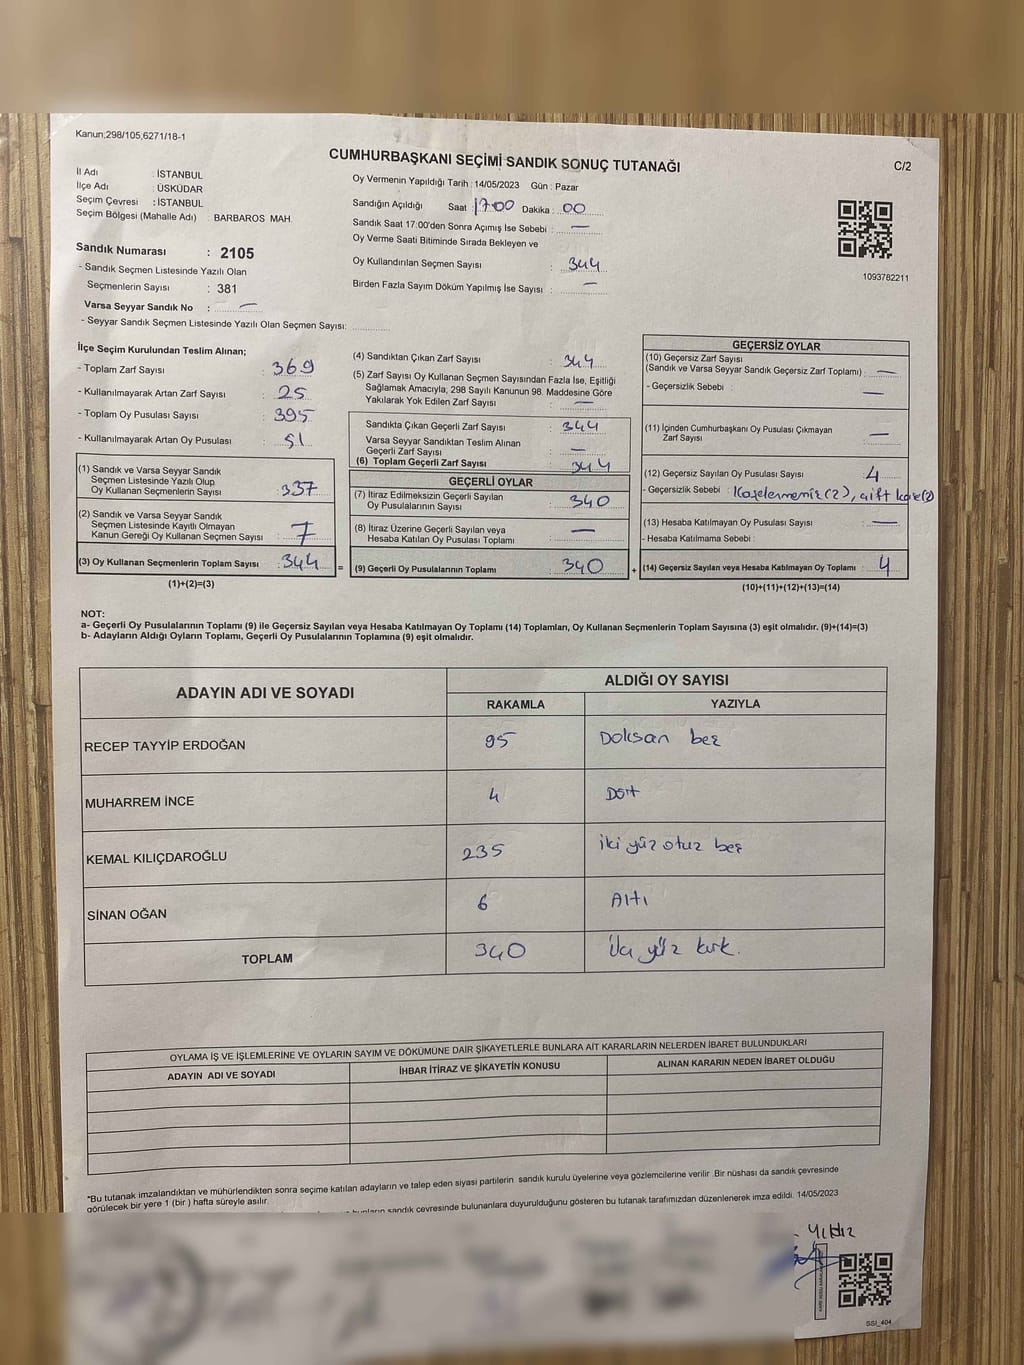 Kanun;298/105,6271/18-1
CUMHURBAŞKANI SEÇİMİ SANDIK SONUÇ TUTANAĞI
C/2
İl Adı : İSTANBUL
İlçe Adı : ÜSKÜDAR
Seçim Çevresi : İSTANBUL
Seçim Bölgesi (Mahalle Adı) BARBAROS MAH.
Sandık Numarası : 2105
- Sandık Seçmen Listesinde Yazılı Olan
Seçmenlerin Sayısı : 381
Varsa Seyyar Sandık No : —
- Seyyar Sandık Seçmen Listesinde Yazılı Olan Seçmen Sayısı:
Oy Vermenin Yapıldığı Tarih : 14/05/2023 Gün : Pazar
Sandığın Açıldığı Saat 17:00 Dakika : 00
Sandık Saat 17:00'den Sonra Açımış İse Sebebi : —
Oy Verme Saati Bitiminde Sırada Bekleyen ve
Oy Kullandırılan Seçmen Sayısı : 344
Birden Fazla Sayım Döküm Yapılmış İse Sayısı : —
1093782211
İlçe Seçim Kurulundan Teslim Alınan;
- Toplam Zarf Sayısı : 369
- Kullanılmayarak Artan Zarf Sayısı : 25
- Toplam Oy Pusulası Sayısı : 395
- Kullanılmayarak Artan Oy Pusulası : 51
(1) Sandık ve Varsa Seyyar Sandık
Seçmen Listesinde Yazılı Olup
Oy Kullanan Seçmenlerin Sayısı : 337
(2) Sandık ve Varsa Seyyar Sandık
Seçmen Listesinde Kayıtlı Olmayan
Kanun Gereği Oy Kullanan Seçmen Sayısı : 7
(3) Oy Kullanan Seçmenlerin Toplam Sayısı : 344
(1)+(2)=(3)
=
(4) Sandıktan Çıkan Zarf Sayısı : 344
(5) Zarf Sayısı Oy Kullanan Seçmen Sayısından Fazla İse, Eşitliği
Sağlamak Amacıyla, 298 Sayılı Kanunun 98. Maddesine Göre
Yakılarak Yok Edilen Zarf Sayısı : —
Sandıkta Çıkan Geçerli Zarf Sayısı : 344
Varsa Seyyar Sandıktan Teslim Alınan
Geçerli Zarf Sayısı : —
(6) Toplam Geçerli Zarf Sayısı : 344
GEÇERLİ OYLAR
(7) İtiraz Edilmeksizin Geçerli Sayılan
Oy Pusulalarının Sayısı : 340
(8) İtiraz Üzerine Geçerli Sayılan veya
Hesaba Katılan Oy Pusulası Toplamı : —
(9) Geçerli Oy Pusulalarının Toplamı : 340
+
GEÇERSİZ OYLAR
(10) Geçersiz Zarf Sayısı
(Sandık ve Varsa Seyyar Sandık Geçersiz Zarf Toplamı) : —
- Geçersizlik Sebebi : —
(11) İçinden Cumhurbaşkanı Oy Pusulası Çıkmayan
Zarf Sayısı : —
(12) Geçersiz Sayılan Oy Pusulası Sayısı : 4
- Geçersizlik Sebebi : Kaşelenmemiş(2), çift kaşe(2)
(13) Hesaba Katılmayan Oy Pusulası Sayısı : —
- Hesaba Katılmama Sebebi :
(14) Geçersiz Sayılan veya Hesaba Katılmayan Oy Toplamı : 4
(10)+(11)+(12)+(13)=(14)
NOT:
a- Geçerli Oy Pusulalarının Toplamı (9) ile Geçersiz Sayılan veya Hesaba Katılmayan Oy Toplamı (14) Toplamları, Oy Kullanan Seçmenlerin Toplam Sayısına (3) eşit olmalıdır. (9)+(14)=(3)
b- Adayların Aldığı Oyların Toplamı, Geçerli Oy Pusulalarının Toplamına (9) eşit olmalıdır.
ADAYIN ADI VE SOYADI
ALDIĞI OY SAYISI
RAKAMLA YAZIYLA
RECEP TAYYİP ERDOĞAN 95 Doksan beş
MUHARREM İNCE 4 Dört
KEMAL KILIÇDAROĞLU 235 İki yüz otuz beş
SİNAN OĞAN 6 Altı
TOPLAM 340 Üç yüz kırk.
OYLAMA İŞ VE İŞLEMLERİNE VE OYLARIN SAYIM VE DÖKÜMÜNE DAİR ŞİKAYETLERLE BUNLARA AİT KARARLARIN NELERDEN İBARET BULUNDUKLARI
ADAYIN ADI VE SOYADI İHBAR İTİRAZ VE ŞİKAYETİN KONUSU ALINAN KARARIN NEDEN İBARET OLDUĞU
"Bu tutanak imzalandıktan ve mühürlendikten sonra seçime katılan adayların ve talep eden siyasi partilerin sandık kurulu üyelerine veya gözlemcilerine verilir .Bir nüshası da sandık çevresinde
görülecek bir yere 1 (bir ) hafta süreyle asılır.
sandık çevresinde bulunanlara duyurulduğunu gösteren bu tutanak tarafımızdan düzenlenerek imza edildi. 14/05/2023
Yıldız
SSI_404